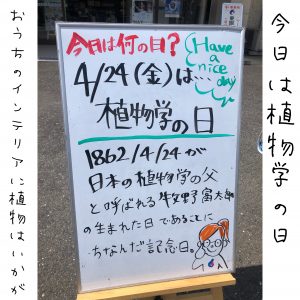 今日は植物学の日
今日は何の日?
Have
a
nice
day
4/24(金)は...
植物学の日
1862/4/24が
日本の植物学の父
と呼ばれる牧野富太郎
の生まれた日であることに
ちなんだ記念日。
おうちのインテリアに植物はいかが